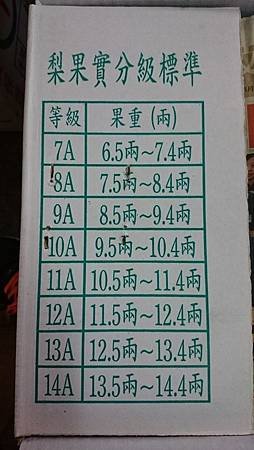 梨果實分級標準
等級 果重 (兩)
7A 6.5兩~7.4兩
8A 7.5兩~8.4兩
9A 8.5兩~9.4兩
10A 9.5兩~10.4兩
11A 10.5兩~11.4兩
12A 11.5兩~12.4兩
13A 12.5兩~13.4兩
14A 13.5兩~14.4兩